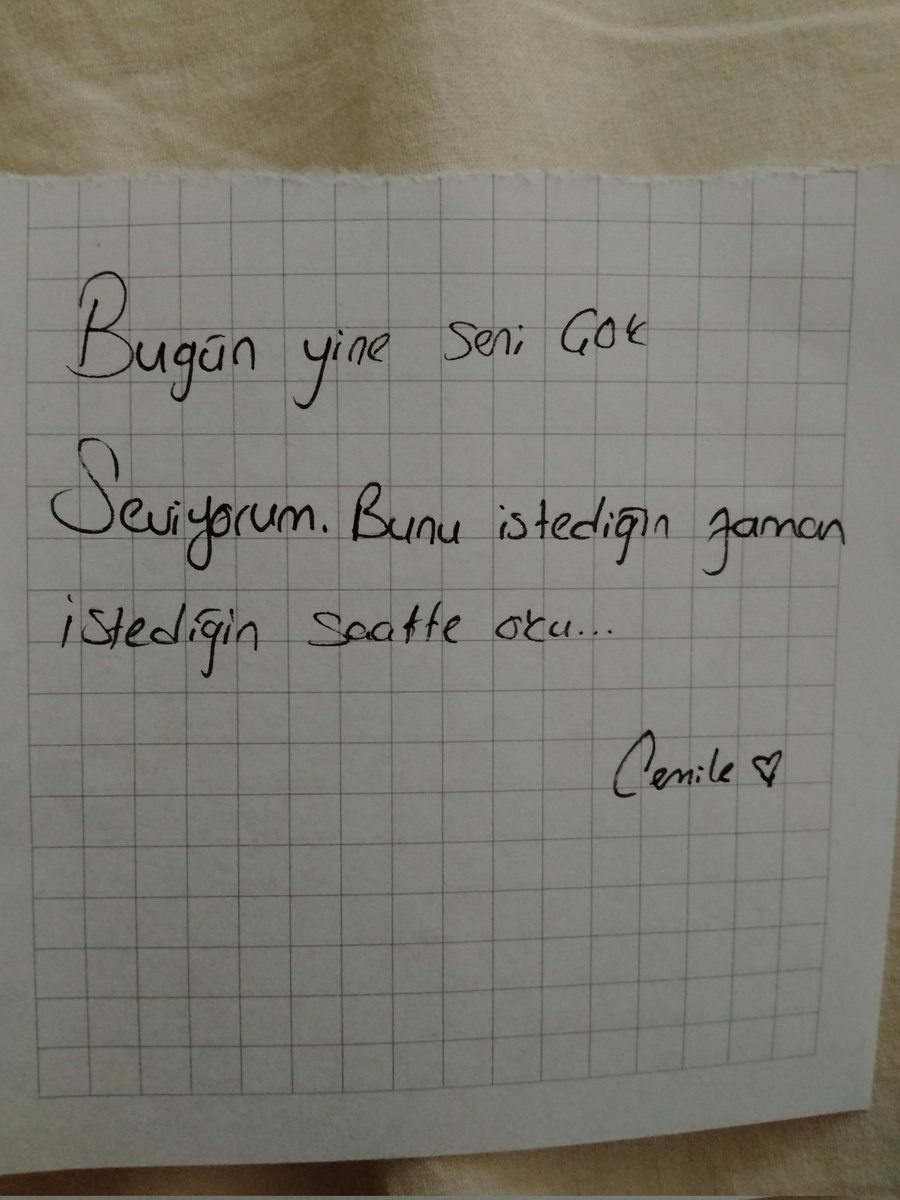 Bugün yine seni Çok
Seviyorum. Bunu istediğin zaman
istediğin saatte oku...
Cemile ♡